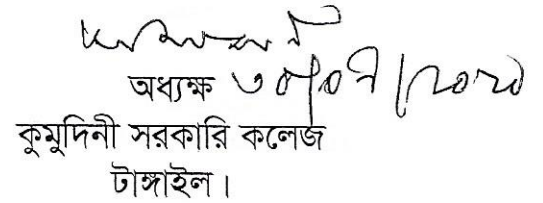 অধ্যক্ষ ৩০/০৭/২০২০
কুমুদিনী সরকারি কলেজ
টাঙ্গাইল।